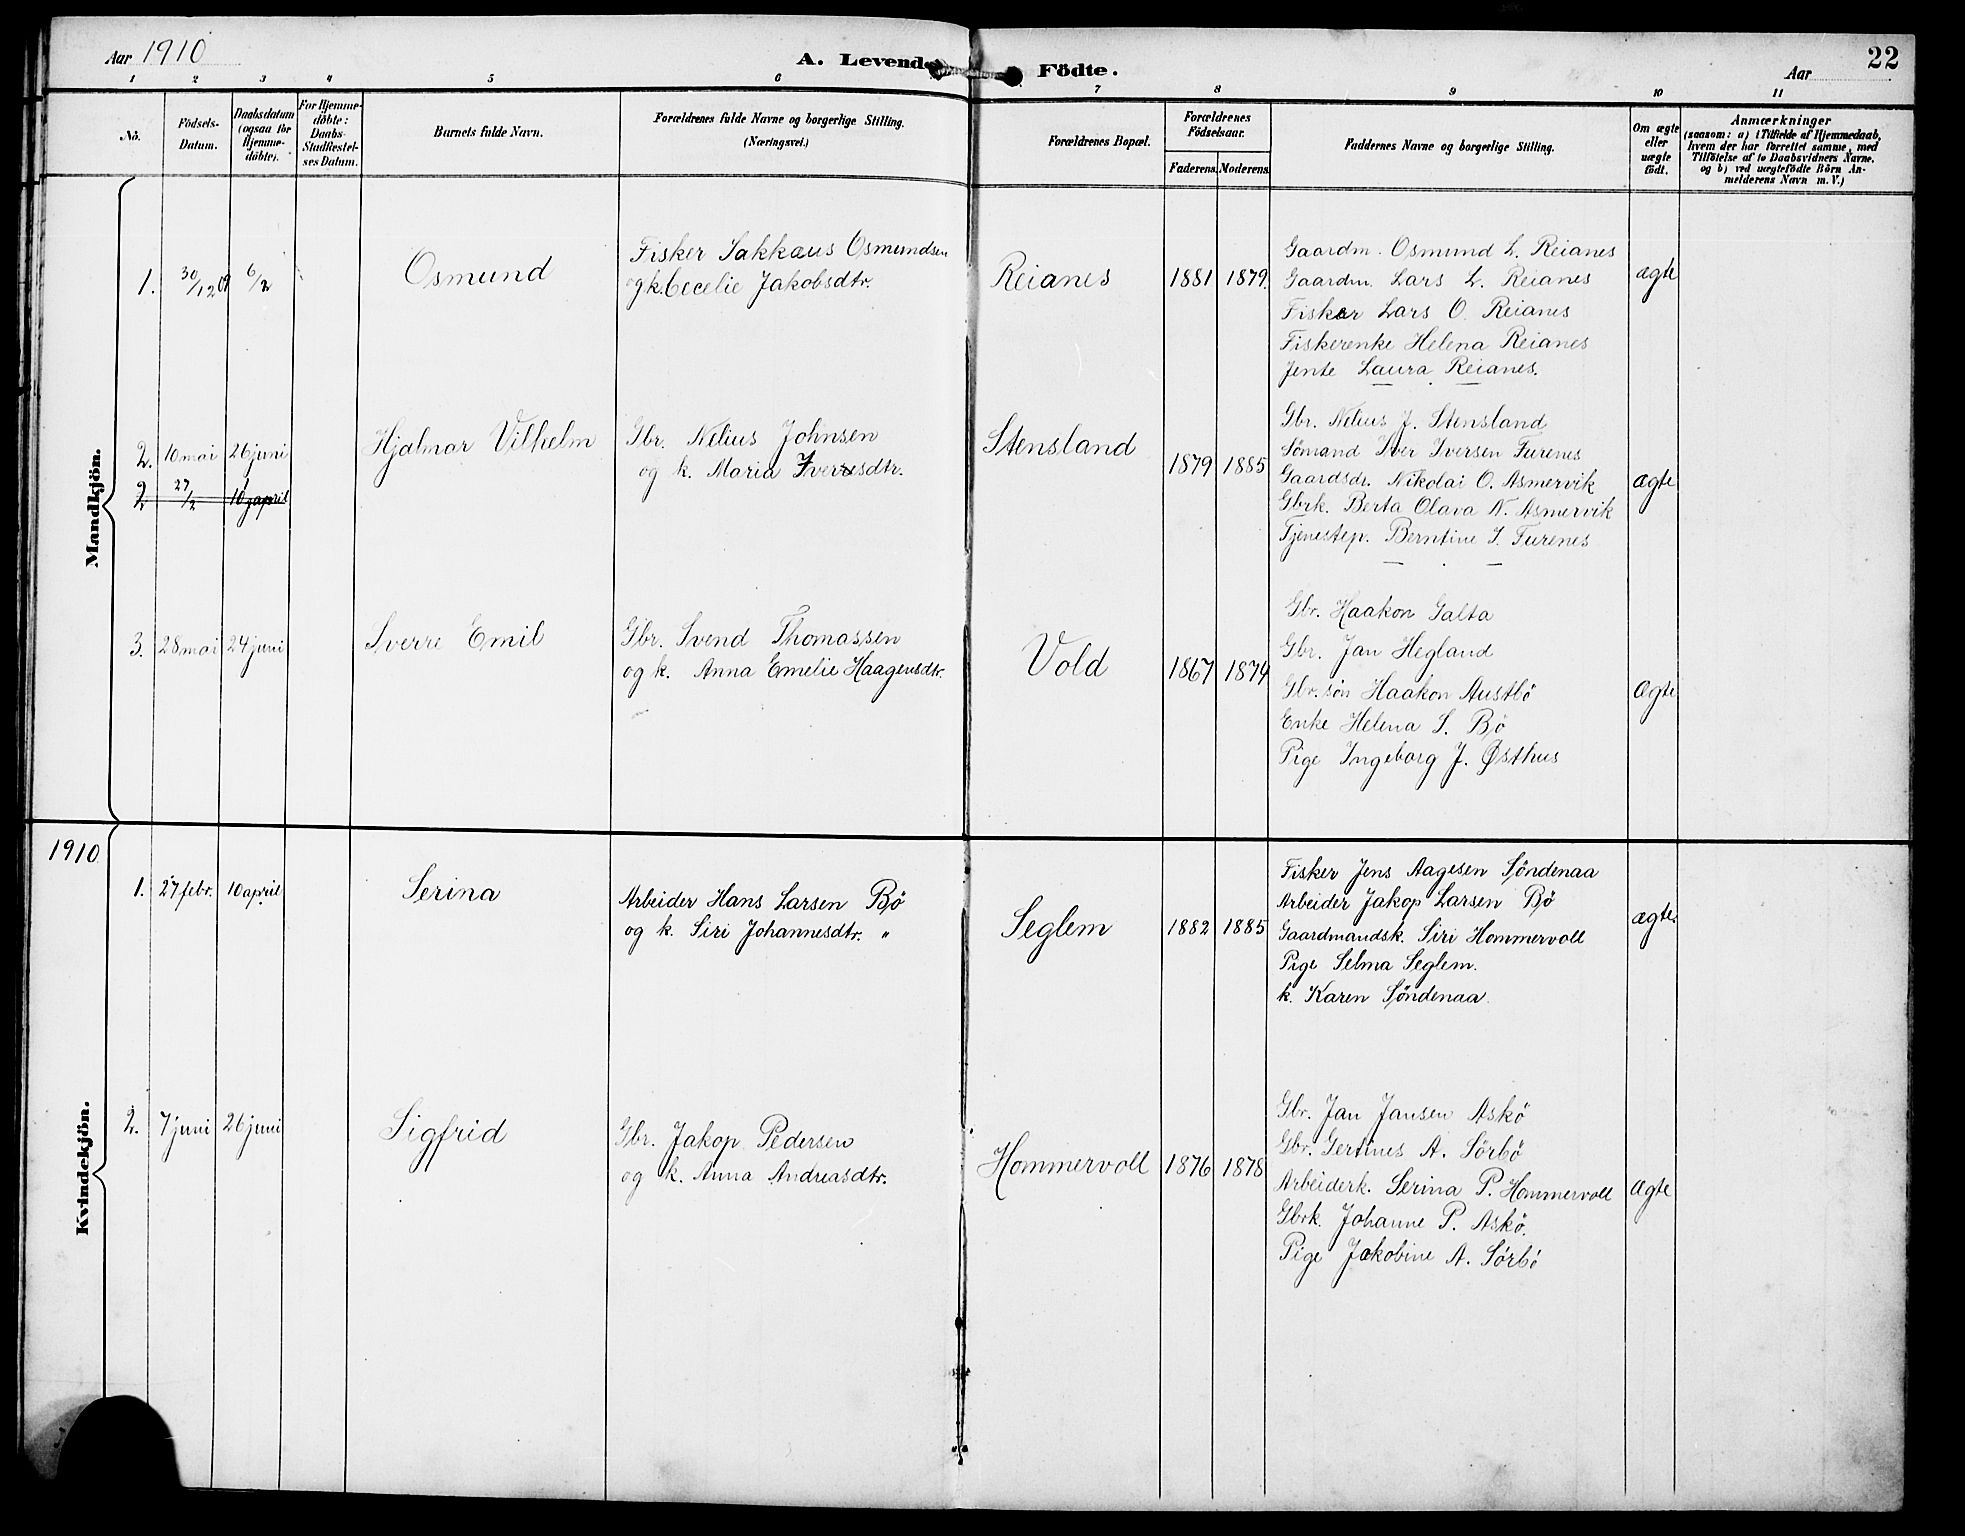 Aar 1910
A. Levende Födte.
Aar
22
1 2 3 4 5 6 7 8 9 10 11
No.
Födsels-
Datum.
Daabsdatum
(ogsaa for
Hjemme-
döbte).
For Hjemme-
döbte:
Daabs-
Stadfæstel-
ses Datum.
Barnets fulde Navn.
Forældrenes fulde Navne og borgerlige Stilling.
(Næringsvei.)
Forældrenes Bopæl.
Forældrenes
Födselsaar.
Faderens. Moderens.
Faddernes Navne og borgerlige Stilling.
Om ægte
eller
uægte
födt.
Anmærkninger
(saasom: a) i Tilfælde af Hjemmedaab,
hvem der har forrettet samme, med
Tilföielse af to Daabsvidners Navne,
og b) ved uægtefödte Börn An-
melderens Navn m. V.)
Mandkjön.
1. 30/12 09 6/2
Osmund
Fisker Sakkæus Osmundsen
og k. Cecelie Jakobsdtr.
Reianes
1881 1879.
Gaardm. Osmund L. Reianes
Gaardm. Lars L. Reianes
Fisker Lars O. Reianes
Fiskerenke Helena Reianes
Jente Laura Reianes.
ægte
2. 10 mai 26 juni
2. 27/2 10 april
Hjalmar Vilhelm
Gbr. Nelius Johnsen
og k. Maria Iversdtr.
Stensland
1879 1885
Gbr. Nelius J. Stensland
Sömand Iver Iversen Furenes
Gaardsdr. Nikolai O. Asmervik
Gbrk. Berta Olava N. Asmervik
Tjenestep. Berntine I. Furenes
ægte
3. 28 mai 24 juni
Sverre Emil
Gbr. Svend Thomassen
og k. Anna Emelie Haagensdtr.
Vold
1867 1874
Gbr. Haakon Galta
Gbr. Jan Hegland
Gbr. sön Haakon Austbö
Enke Helena S. Bö
Pige Ingeborg J. Østhus
Ægte
1910
Kvindekjön.
1. 27 febr. 10 april
Serina
Arbeider Hans Larsen Bö
og k. Siri Johannesdtr. "
Seglem
1882 1885
Fisker Jens Aagesen Söndenaa
Arbeider Jakop Larsen Bö
Gaardmandsk. Siri Hommervoll
Pige Selma Seglem.
k. Karen Söndenaa.
ægte.
2. 7 juni 26 juni
Sigfrid
Gbr. Jakop Pedersen
og k. Anna Andreasdtr.
Hommervoll
1876 1878
Gbr. Jan Jansen Askö
Gbr. Gertines A. Sörbö
Arbeiderk. Serina P. Hommervoll
Gbrk. Johanne P. Askö.
Pige Jakobine A. Sörbö
Ægte